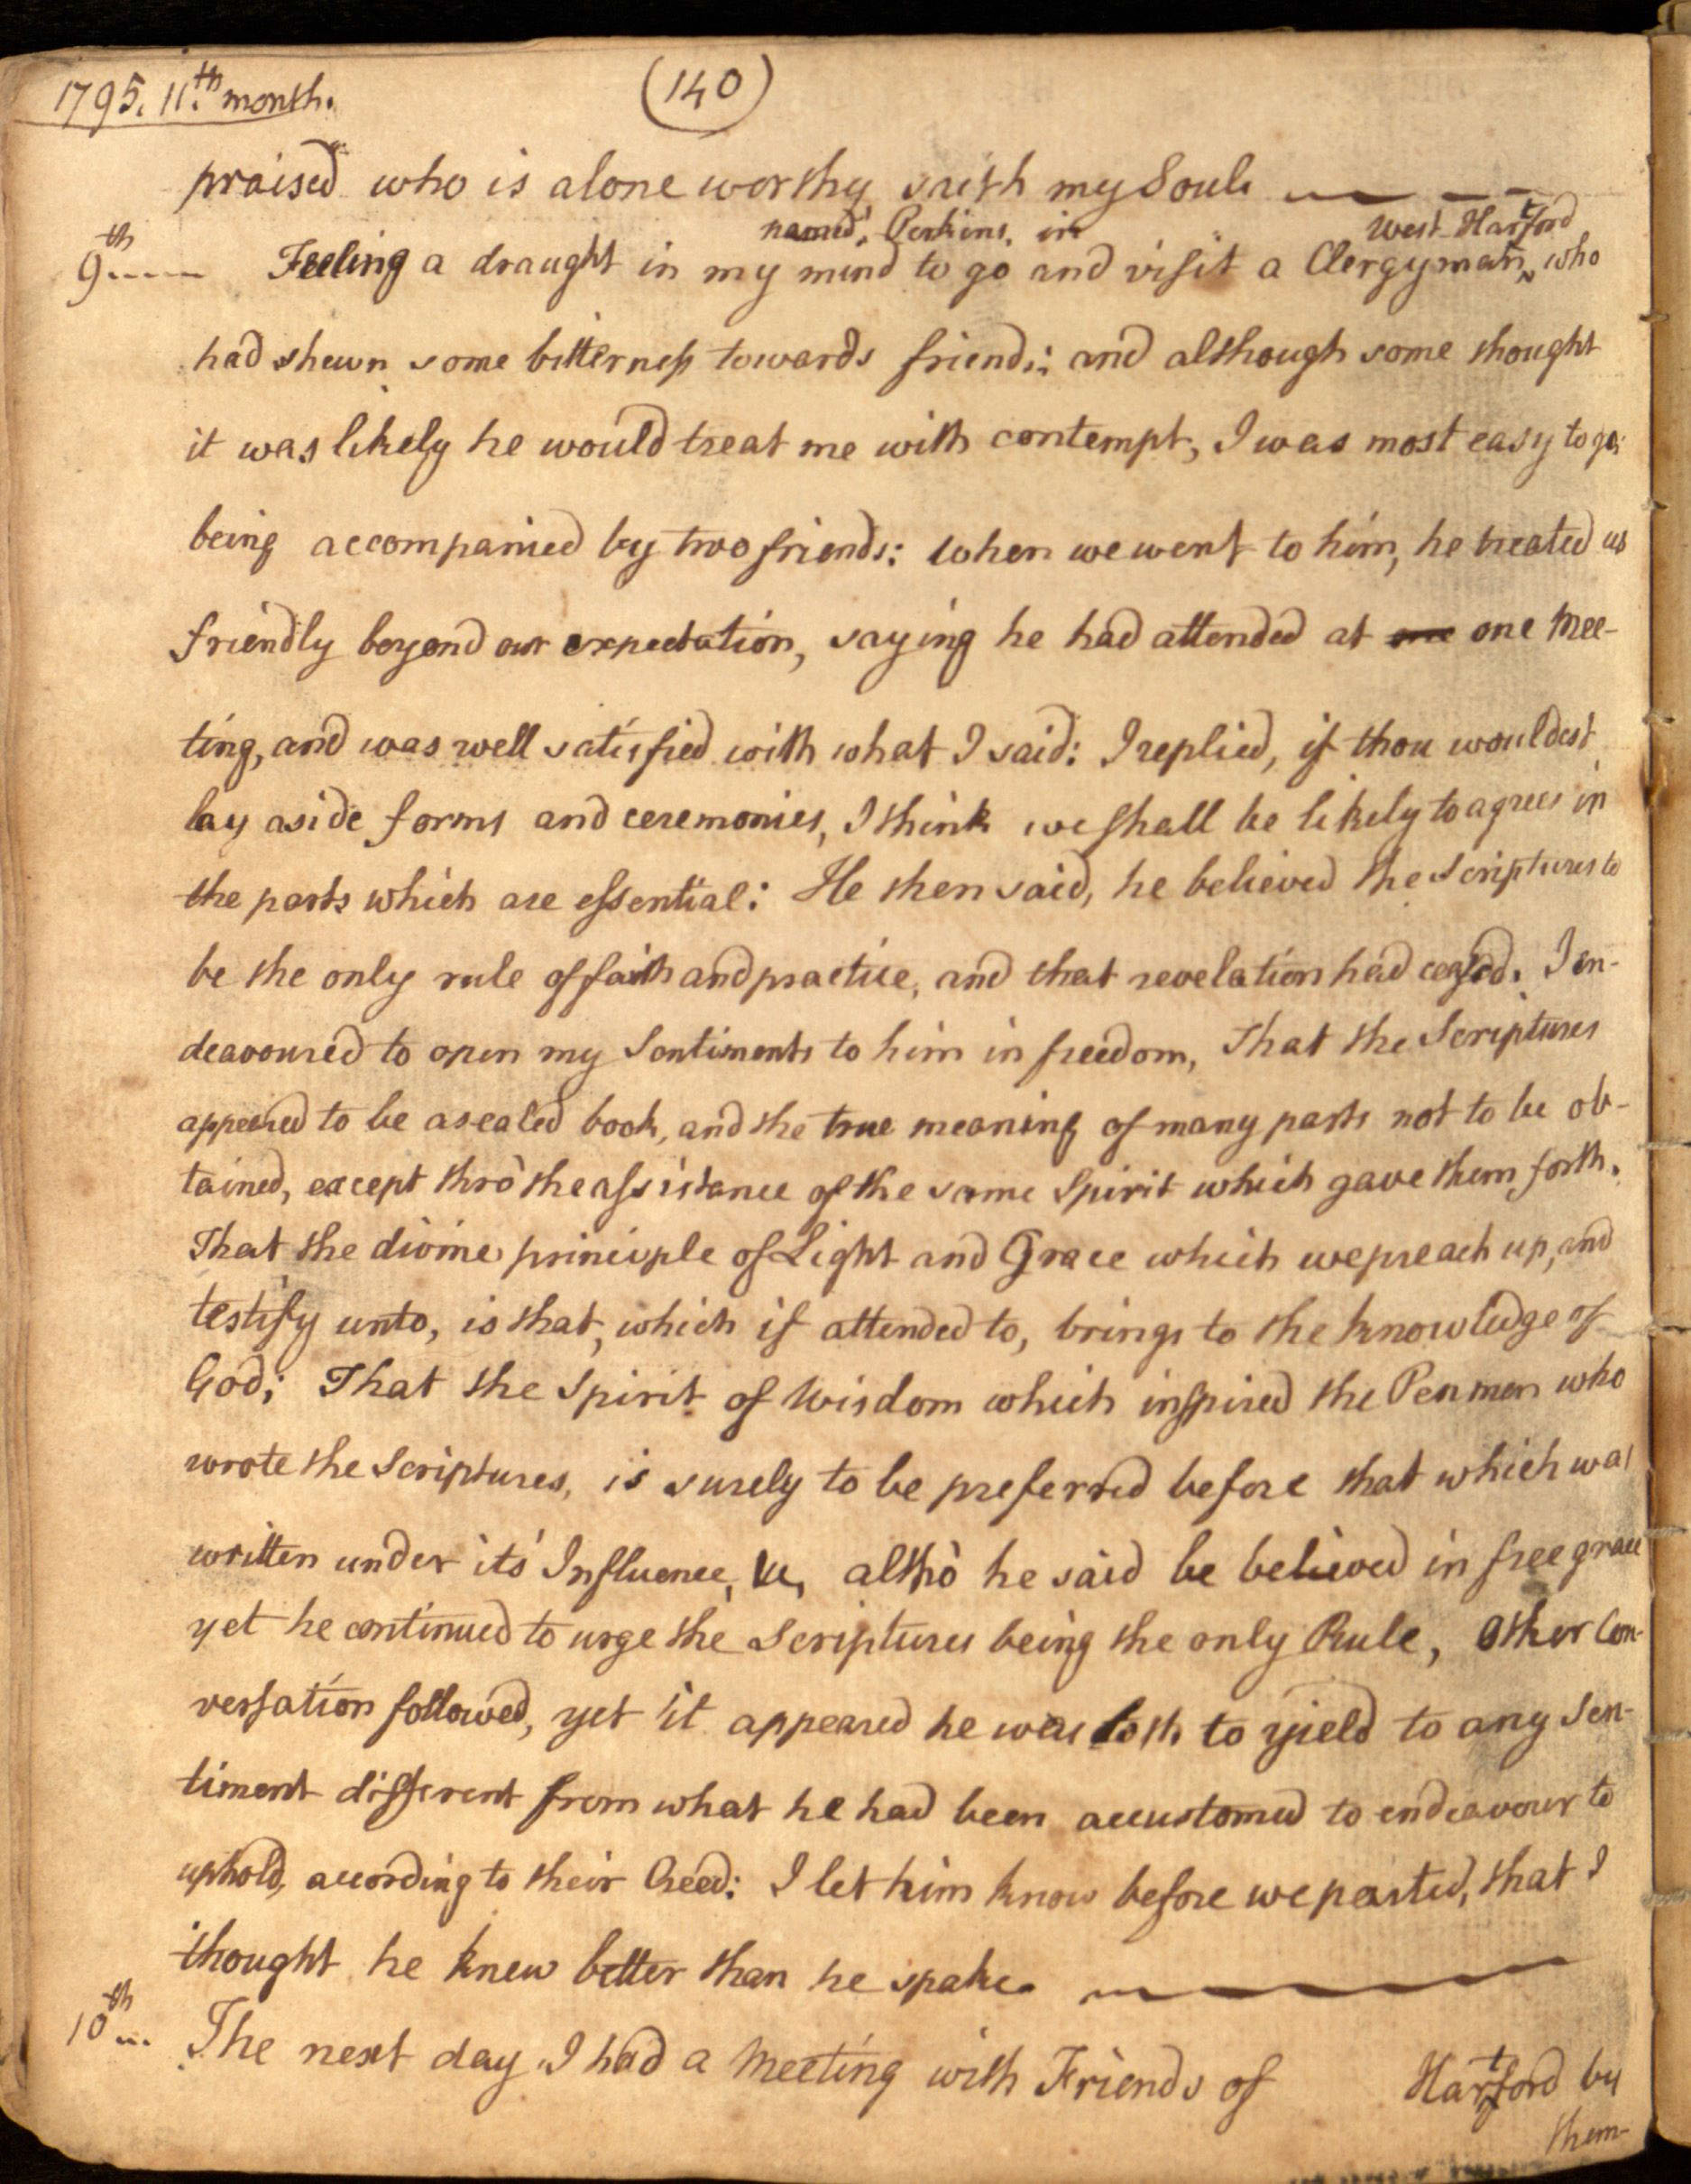 1795. 11.th month.
(140)
praised who is alone worthy saith my Soul.
named, Perkins, in West Hartford
9th Feeling a draught in my mind to go and visit a Clergyman, who
had shewn some bitterness towards friends; and although some thought
it was likely he would treat me with contempt, I was most easy to go;
being accompanied by two friends: when we went to him, he treated us
friendly beyond our expectation, saying he had attended at one one Mee-
ting, and was well satisfied with what I said: I replied, if thou wouldest
lay aside forms and ceremonies, I think we shall be likely to agree in
the parts which are essential: He then said, he believed the Scriptures to
be the only rule of faith and practice, and that revelation had ceased. I en-
deavoured to open my Sentiments to him in freedom, That the Scriptures
appeared to be a sealed book, and the true meaning of many parts not to be ob-
tained, except thro' the assistance of the same Spirit which gave them forth.
That the divine principle of Light and Grace which we preach up, and
testify unto, is that, which if attended to, brings to the knowledge of
God; That the Spirit of Wisdom which inspired the Penmen who
wrote the Scriptures, is surely to be preferred before that which was
written under its' Influence, &c, altho' he said he believed in free grace
yet he continued to urge the Scriptures being the only Rule, Other Con-
versation followed, yet it appeared he was loth to yield to any Sen-
timent different from what he had been accustomed to endeavour to
uphold, according to their Creed: I let him know before we parted, that I
thought he knew better than he spake.
10th The next day I had a Meeting with Friends of Hartford by
them-